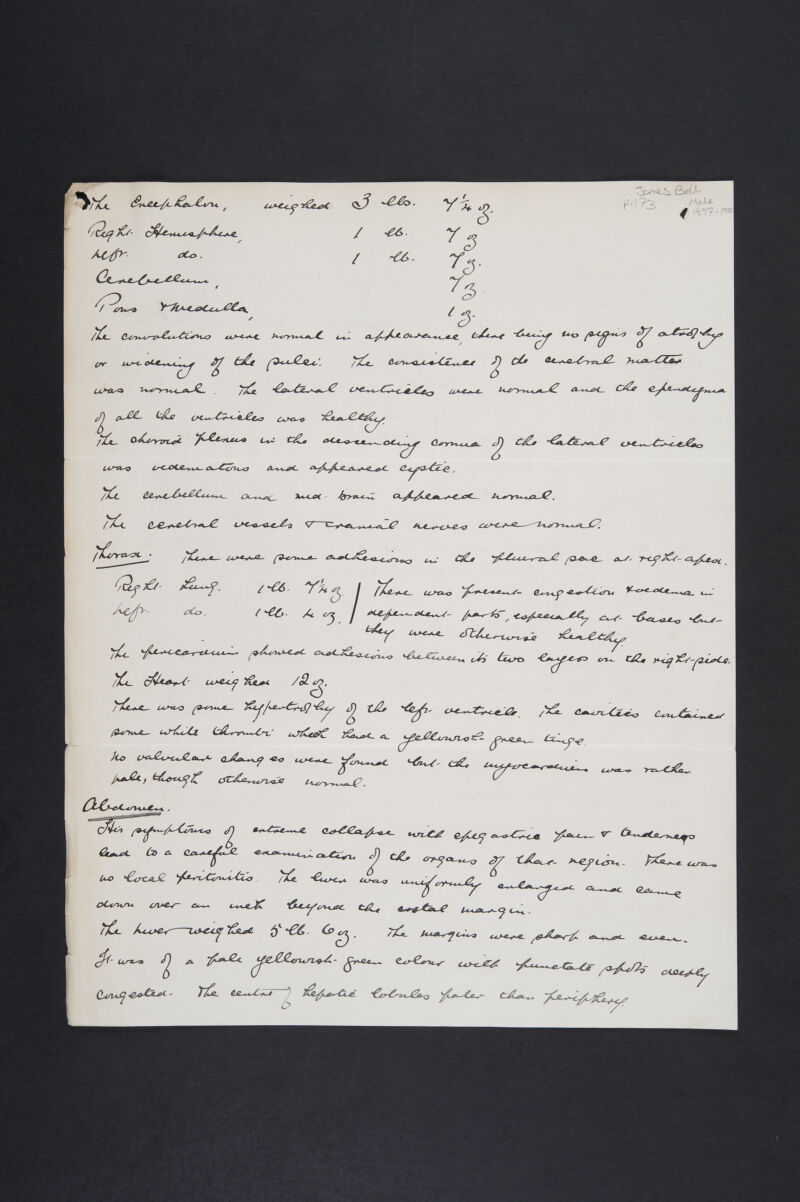 James Bell
p. 173 Male
The Encephalon, weighed 3 lbs. 7 1/4 oz.
Right Hemisphere, 1 lb. 7 oz
Left do. 1 lb. 7 oz.
Cerebellum, 7 oz.
Pons & Medulla, 1 oz.
The convolutions were normal in appearance, there being no signs of atrophy
or widening of the sulci. The consistence of the cerebral matter
was normal. The lateral ventricles were normal and the ependyma
of all the ventricles was healthy.
The choroid plexus in the descending cornua of the lateral ventricles
was oedematous and appeared cystic.
The cerebellum and mid-brain appeared normal.
The cerebral vessels & cranial nerves were normal.
Thorax. There were some adhesions in the pleural sac at right apex.
Right Lung. 1 lb. 7 1/2 oz There was present congestion & oedema in
Left do. 1 lb. 4 oz. dependent parts, especially at bases but
they were otherwise healthy.
The pericardium showed adhesions between its two layers on the right side.
The Heart weighed 12 oz.
There was some hypertrophy of the left ventricle. The cavities contained
some white thrombi which had a yellowish-green tinge.
No valvular changes were found but the myocardium was rather
pale, though otherwise normal.
Abdomen.
His symptoms of extreme collapse with epigastric pain & tenderness
lead to a careful examination of the organs of that region. There was
no local peritonitis. The liver was uniformly enlarged and came
down over an inch beyond the costal margin.
The liver weighed 5 lb. 6 oz. The margins were sharp and even.
It was of a pale yellowish-green colour with punctate spots deeply
congested. The centre of hepatic lobules paler than periphery.